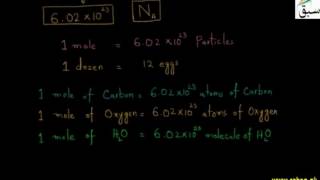 6.02 × 10²³ N_A
سبق
1 mole = 6.02 × 10²³ Particles
1 dozen = 12 eggs
1 mole of Carbon = 6.02 × 10²³ atoms of Carbon
1 mole of Oxygen = 6.02 × 10²³ atoms of Oxygen
1 mole of H₂O = 6.02 × 10²³ molecule of H₂O